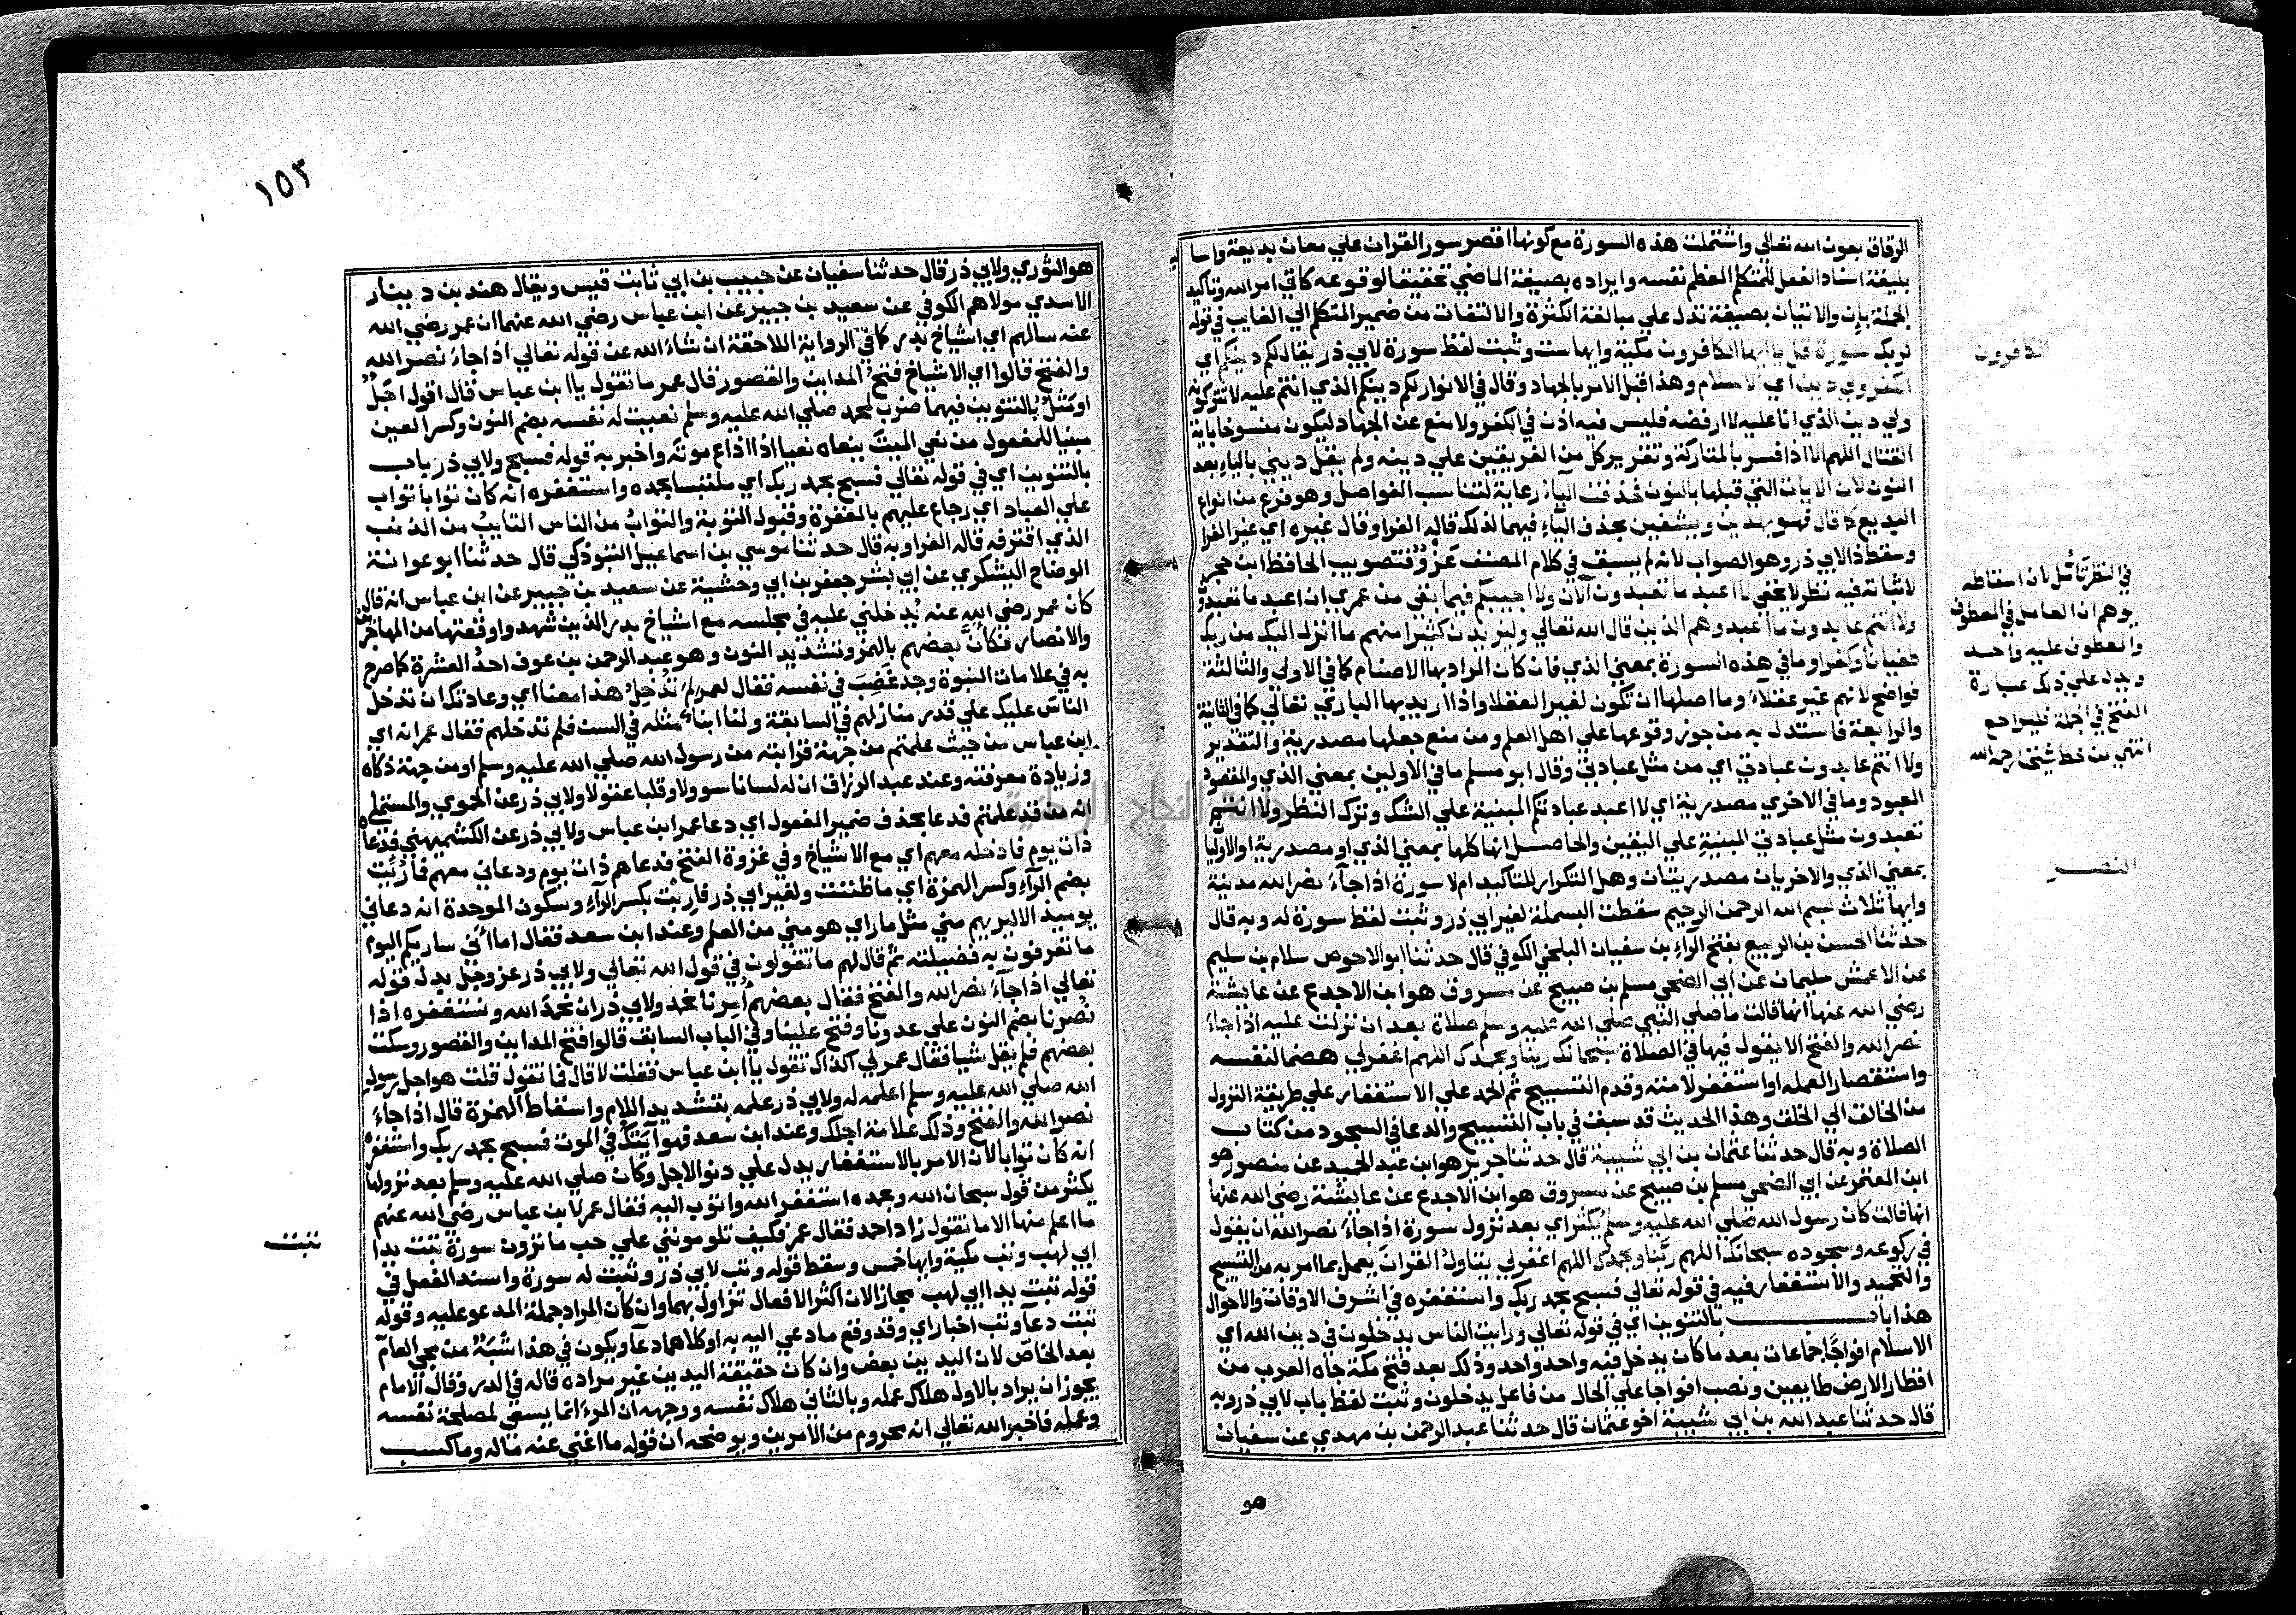 الرقاق بعون الله تعالي واشتملت هذه السورة مع كونها اقصر سور القران علي معان بديعة واسا
بليغة اسناد الفعل للمتكلم المعظم نفسه وايراده بصيغة الماضي تحقيقا لوقوعه كاتي امر الله وتاكيد
الجملة بإن والاتيان بصيغة تدل علي مبالغة الكثرة والالتفات من ضمير المتكلم الي الغايب في قوله
لربك سورة قل ياايها الكافرون مكية وايها ست وثبت لفظ سورة لابي ذر يقال لكم دينكم اي
الكفر ولي دين اي الاسلام وهذا قبل الامر بالجهاد وقال في الانوار لكم دينكم الذي انتم عليه لا تتركونه
ولي دين الذي انا عليه لا ارفضه فليس فيه اذن في الكفر ولا منع عن الجهاد ليكون منسوخا باية
القتال اللهم الا اذا فسر بالمتاركة وتقرير كل من الفريقين علي دينه ولم يقل ديني بالياء بعد
النون لان الايات التي قبلها بالنون فحذفت الياء رعاية لتناسب الفواصل وهو فرع من انواع
البديع كما قال فهو يهدين ويشفين بحذف الياء فيهما لذلك قاله الفرا وقال غيره اي غير الفرا
وسقط ذا لابي ذر وهو الصواب لانه لم يسبق في كلام المصنف عزو فتصويب الحافظ ابن حجر
لاثباته فيه نظر لا يخفي لا اعبد ما تعبدون الآن ولا اجيبكم فيما بقي من عمري ان اعبد ما تعبدون
ولا انتم عابدون ما اعبد وهم الذين قال الله تعالي وليزيدن كثيرا منهم ما انزل اليك من ربك
طغيانا وكفرا وما في هذه السورة بمعني الذي فان كان المراد بها الاصنام كما في الاولي والثالثة
فواضح لانهم غير عقلاء وما اصلها ان تكون لغير العقلا واذا اريد بها الباري تعالي كما في الثانية
والرابعة فاستدل به من جوز وقوعها علي اهل العلم ومن منع جعلها مصدرية والتقدير
ولا انتم عابدون عبادتي اي من مثل عبادتي وقال ابو مسلم ما في الاولين بمعني الذي والمقصود
المعبود وما في الاخري مصدرية اي لا اعبد عبادتكم المبنية علي الشك وترك النظر ولا انتم
تعبدون مثل عبادتي المبنية علي اليقين والحاصل انها كلها بمعني الذي او مصدرية او الاوليا
بمعني الذي والاخريان مصدريتان وهل التكرار للتاكيد ام لا سورة اذا جاء نصر الله مدنية
وايها ثلاث بسم الله الرحمن الرحيم سقطت البسملة لغير ابي ذر وثبت لفظ سورة له وبه قال
حدثنا الحسن بن الربيع بفتح الراء بن سفيان البلخي الكوفي قال حدثنا ابو الاحوص سلام بن سليم
عن الاعمش سليمان عن ابي الضحي مسلم بن صبيح عن مسروق هو ابن الاجدع عن عايشة
رضي الله عنها انها قالت ما صلي النبي صلي الله عليه وسلم صلاة بعد ان نزلت عليه اذا جاء
نصر الله والفتح الا يقول فيها في الصلاة سبحانك ربنا وبحمدك اللهم اغفرلي هضما لنفسه
واستقصارا لعمله او استغفر لامته وقدم التسبيح ثم الحمد علي الاستغفار علي طريقة النزول
من الخالق الي الخلق وهذا الحديث قد سبق في باب التسبيح والدعا في السجود من كتاب
الصلاة وبه قال حدثنا عثمان بن ابي شيبة قال حدثنا جرير هو ابن عبد الحميد عن منصور هو
ابن المعتمر عن ابي الضحي مسلم بن صبيح عن مسروق هو ابن الاجدع عن عايشة رضي الله عنها
انها قالت كان رسول الله صلي الله عليه وسلم يكثر اي بعد نزول سورة اذا جاء نصر الله ان يقول
في ركوعه وسجوده سبحانك اللهم ربنا وبحمدك اللهم اغفرلي يتاول القران يعمل بما امر به من التسبيح
والتحميد والاستغفار فيه في قوله تعالي فسبح بحمد ربك واستغفره في اشرف الاوقات والاحوال
هذا باب بالتنوين اي في قوله تعالي ورايت الناس يدخلون في دين الله اي
الاسلام افواجا جماعات بعد ما كان يدخل فيه واحد واحد وذلك بعد فتح مكة جاه العرب من
اقطار الارض طايعين ونصب افواجا علي الحال من فاعل يدخلون وثبت لفظ باب لابي ذر وبه
قال حدثنا عبد الله بن ابي شيبة اخو عثمان قال حدثنا عبد الرحمن بن مهدي عن سفيان
هو
الكافرون
في النظر تأمل لان اسقاطه
يوهم ان العامل في المعطوف
والمعطوف عليه واحد
ويدل علي ذلك عبارة
الفتح في الجملة فليراجع
انتهي من خط شيخنا رحمه الله
النصر
١٥٣
هو الثوري ولابي ذر قال حدثنا سفيان عن حبيب بن ابي ثابت قيس ويقال هند بن دينار
الاسدي مولاهم الكوفي عن سعيد بن جبير عن ابن عباس رضي الله عنهما ان عمر رضي الله
عنه سالهم اي اشياخ بدر كما في الرواية اللاحقة ان شاء الله عن قوله تعالي اذا جاء نصر الله
والفتح قالوا اي الاشياخ فتح المداين والقصور قال عمر ما تقول يا ابن عباس قال اقول اجل
او مثل بالتنوين فيهما ضرب لمحمد صلي الله عليه وسلم نعيت له نفسه بضم النون وكسر العين
مبنيا للمفعول من نعي الميت ينعاه نعيا اذا اذاع موته واخبر به قوله فسبح ولابي ذر باب
بالتنوين اي في قوله تعالي فسبح بحمد ربك اي ملتبسا بحمده واستغفره انه كان توابا تواب
علي العباد اي رجاع عليهم بالمغفرة وقبول التوبة والتواب من الناس التايب من الذنب
الذي اقترفه قاله الفرا وبه قال حدثنا موسي بن اسماعيل التبوذكي قال حدثنا ابو عوانة
الوضاح اليشكري عن ابي بشر جعفر بن ابي وحشية عن سعيد بن جبير عن ابن عباس انه قال
كان عمر رضي الله عنه يدخلني عليه في مجلسه مع اشياخ بدر الذين شهدوا وقعتها من المهاجرين
والانصار فكأن بعضهم بالهمز وتشديد النون وهو عبد الرحمن بن عوف احد العشرة كما صرح
به في علامات النبوة وجد غضب في نفسه فقال لعمر لم تدخل هذا معنا اي وعادتك ان تدخل
الناس عليك علي قدر منازلهم في السابقة ولنا ابناء مثله في السن فلم تدخلهم فقال عمر انه اي
ابن عباس من حيث علمتم من جهة قرابته من رسول الله صلي الله عليه وسلم او من جهة ذكاه
وزيادة معرفته وعند عبد الرزاق ان له لسانا سوولا وقلبا عقولا ولابي ذر عن الحموي والمستملي
انه من قد علمتم فدعا بحذف ضمير المفعول اي دعا عمر ابن عباس ولابي ذر عن الكشميهني فدعاه
ذات يوم فادخله معهم اي مع الاشياخ وفي غزوة الفتح فدعاهم ذات يوم ودعاني معهم فما رئيت
بضم الراء وكسر الهمزة اي ما ظننت ولغير ابي ذر فاريت بكسر الراء وسكون الموحدة انه دعاني
يوميذ الا ليريهم مني مثل ما راي هو مني من العلم وعند ابن سعد فقال اما اني ساريكم اليوم
ما تعرفون به فضيلته ثم قال لهم ما تقولون في قول الله تعالي ولابي ذر عز وجل بدل قوله
تعالي اذا جاء نصر الله والفتح فقال بعضهم امرنا نحمد ولابي ذر ان نحمد الله ونستغفره اذا
نصرنا بضم النون علي عدونا وفتح علينا وفي الباب السابق قالوا فتح المداين والقصور وسكت
بعضهم فلم يقل شيا فقال عمر لي اكذاك تقول يا ابن عباس فقلت لا قال فما تقول قلت هو اجل رسول
الله صلي الله عليه وسلم اعلمه له ولابي ذر علمه بتشديد اللام واسقاط الهمزة قال اذا جاء
نصر الله والفتح وذلك علامة اجلك وعند ابن سعد فهو آيتك في الموت فسبح بحمد ربك واستغفره
انه كان توابا لان الامر بالاستغفار يدل علي دنو الاجل وكان صلي الله عليه وسلم بعد نزولها
يكثر من قول سبحان الله وبحمده استغفر الله واتوب اليه فقال عمر لابن عباس رضي الله عنهم
ما اعلم منها الا ما تقول زاد احمد فقال عمر فكيف تلومونني علي حب ما ترون سورة تبت يدا
ابي لهب وتب مكية وايها خمس وسقط قوله وتب لابي ذر وثبت له سورة واسند الفعل في
قوله تبت يدا ابي لهب مجازا لان اكثر الافعال تزاول بهما وان كان المراد جملة المدعو عليه وقوله
تبت دعا وتب اخبار اي وقد وقع ما دعي اليه به او كلاهما دعا ويكون في هذا شبه من مجي العام
بعد الخاص لان اليدين بعض وان كان حقيقة اليدين غير مراده قاله في الدر وقال الامام
يجوز ان يراد بالاول هلاك عمله وبالثاني هلاك نفسه ووجهه ان المرء انما يسعي لمصلحة نفسه
وعمله فاخبر الله تعالي انه محروم من الامرين ويوضحه ان قوله ما اغني عنه ماله وما كسب
تبت
جامعة النجاح الوطنية